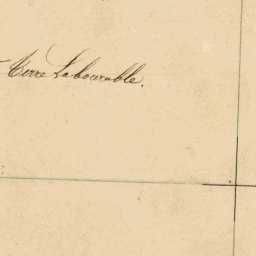 Terre Labourable.